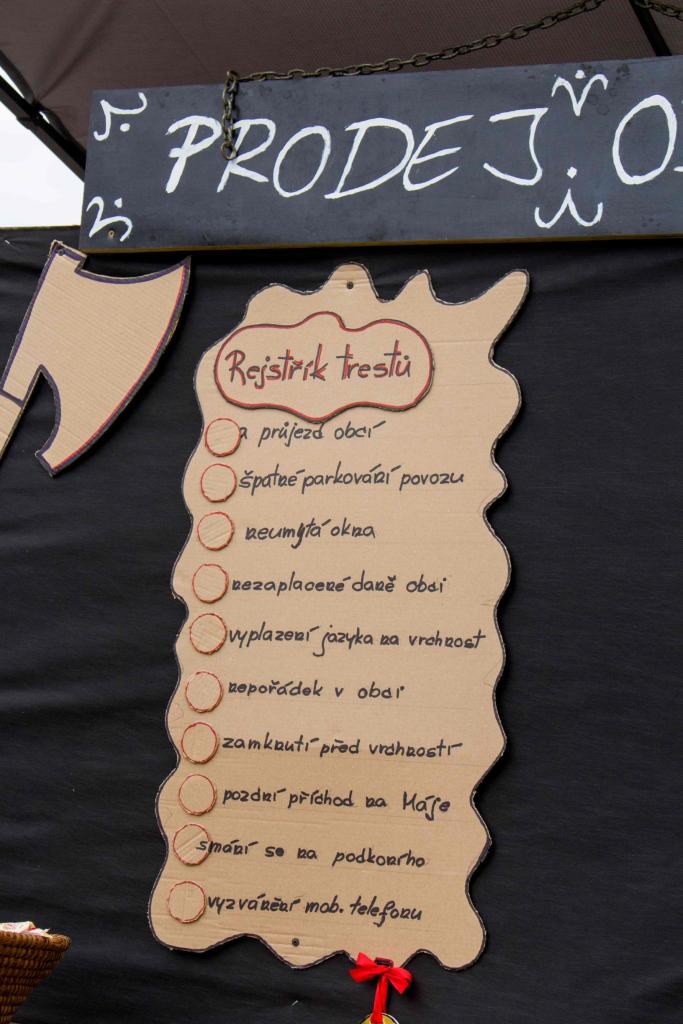 PRODEJ
Rejstřík trestů
průjezd obcí
špatné parkování povozu
neumytá okna
nezaplacené daně obci
vyplazení jazyka na vrchnost
nepořádek v obci
zamknutí před vrchností
pozdní příchod na Máje
smání se na podkoního
vyzvánění mob. telefonu